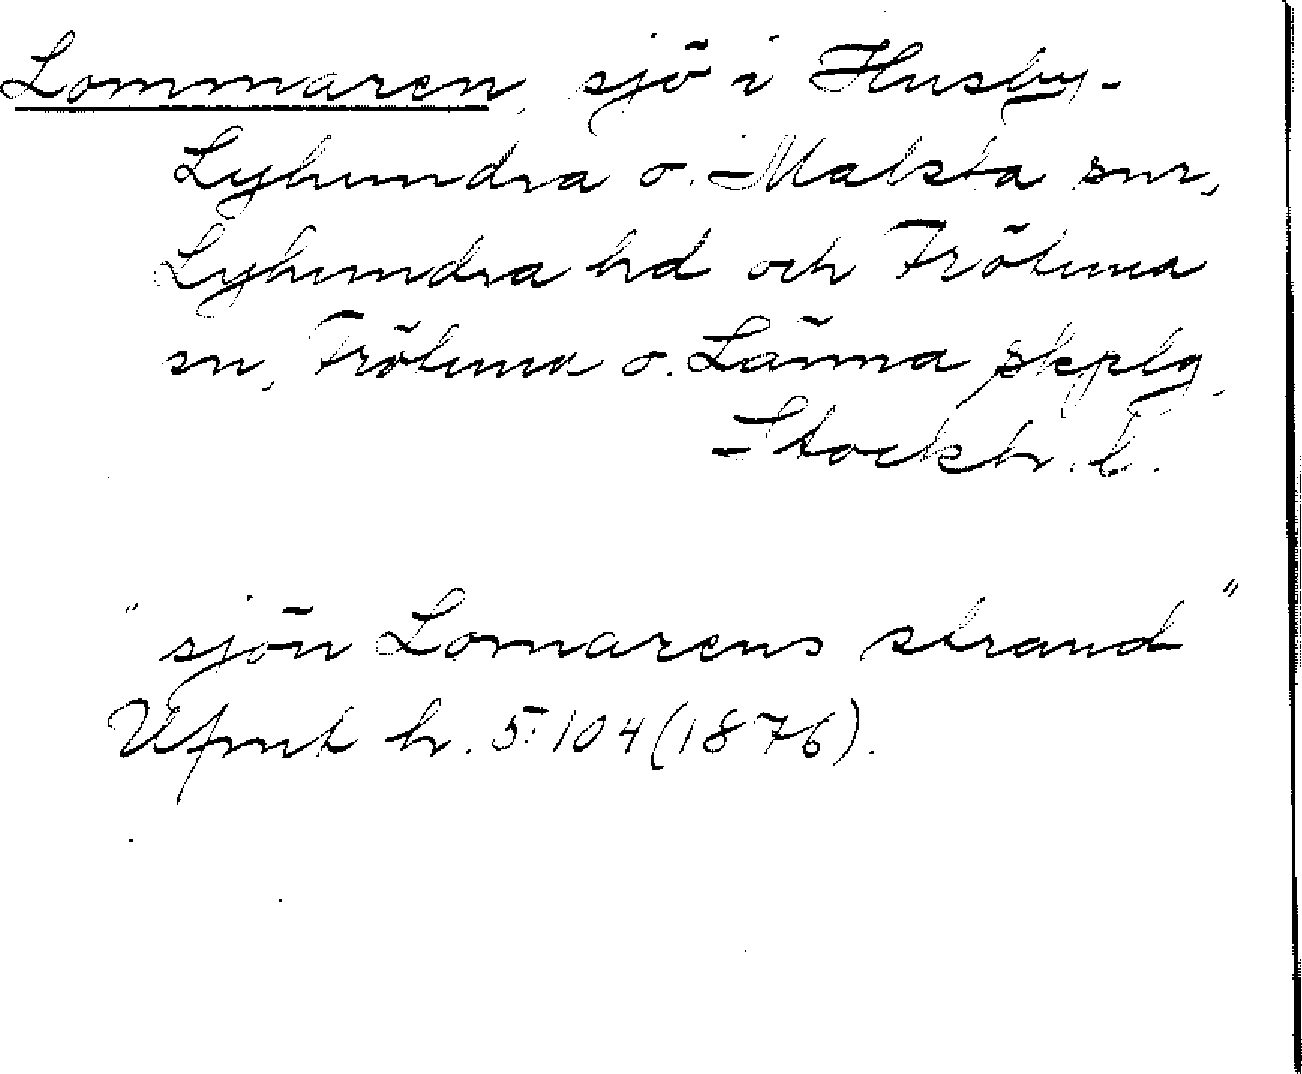 Lommaren, sjö i Husby-
Lyhundra o. Malsta snr,
Lyhundra hd och Frötuna
sn, Frötuna o. Länna skplg,
Stockh. l.
"sjön Lomarens strand"
Ufmt h. 5:104 (1876).